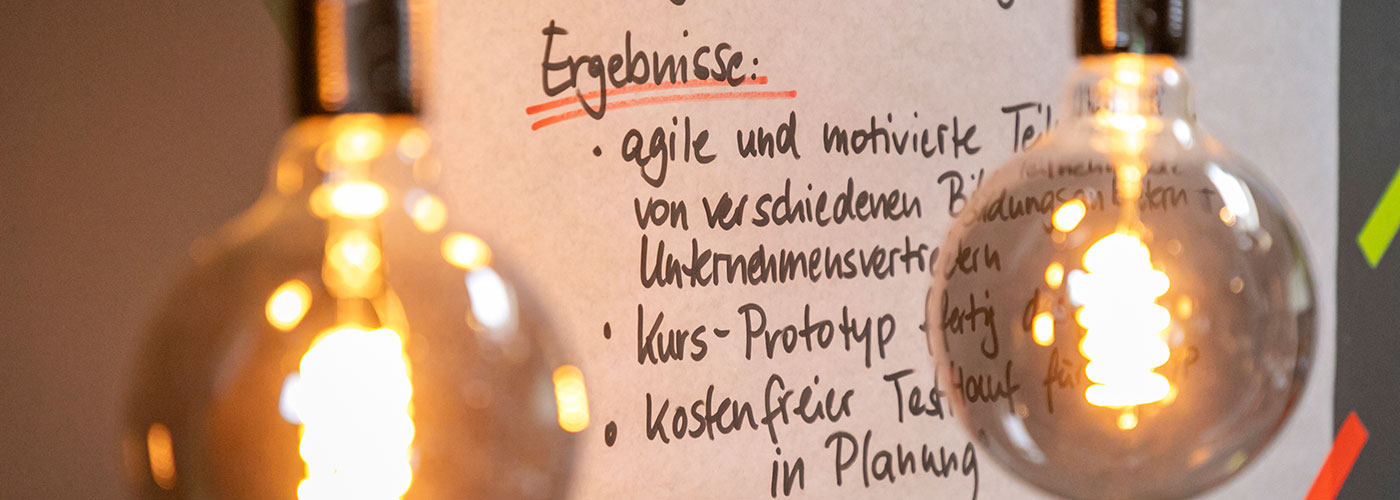 Ergebnisse:
• agile und motivierte
von verschiedenen Bildungsanbietern +
Unternehmensvertretern
• Kurs-Prototyp fertig
• Kostenfreier Testlauf für
in Planung